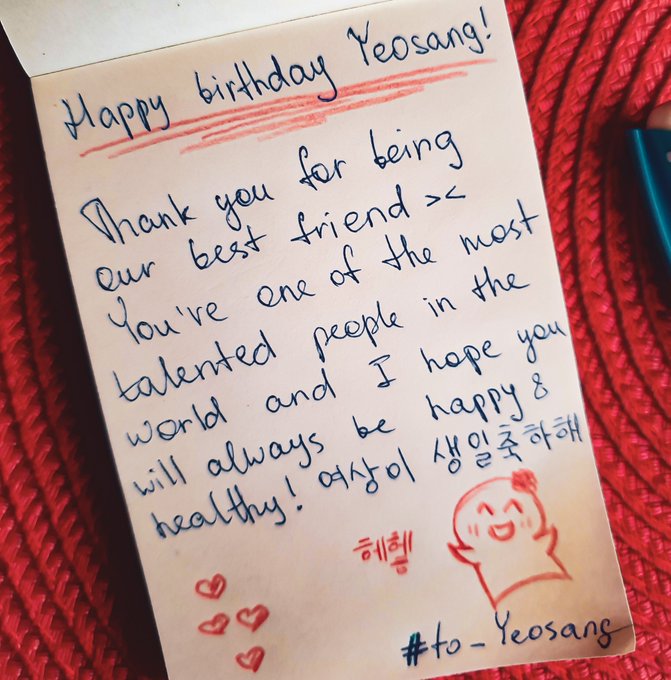 Happy birthday Yeosang!
Thank you for being
our best friend ><
You've one of the most
talented people in the
world and I hope you
will always be happy &
healthy! 여상이 생일축하해
헤헿
#to_Yeosang